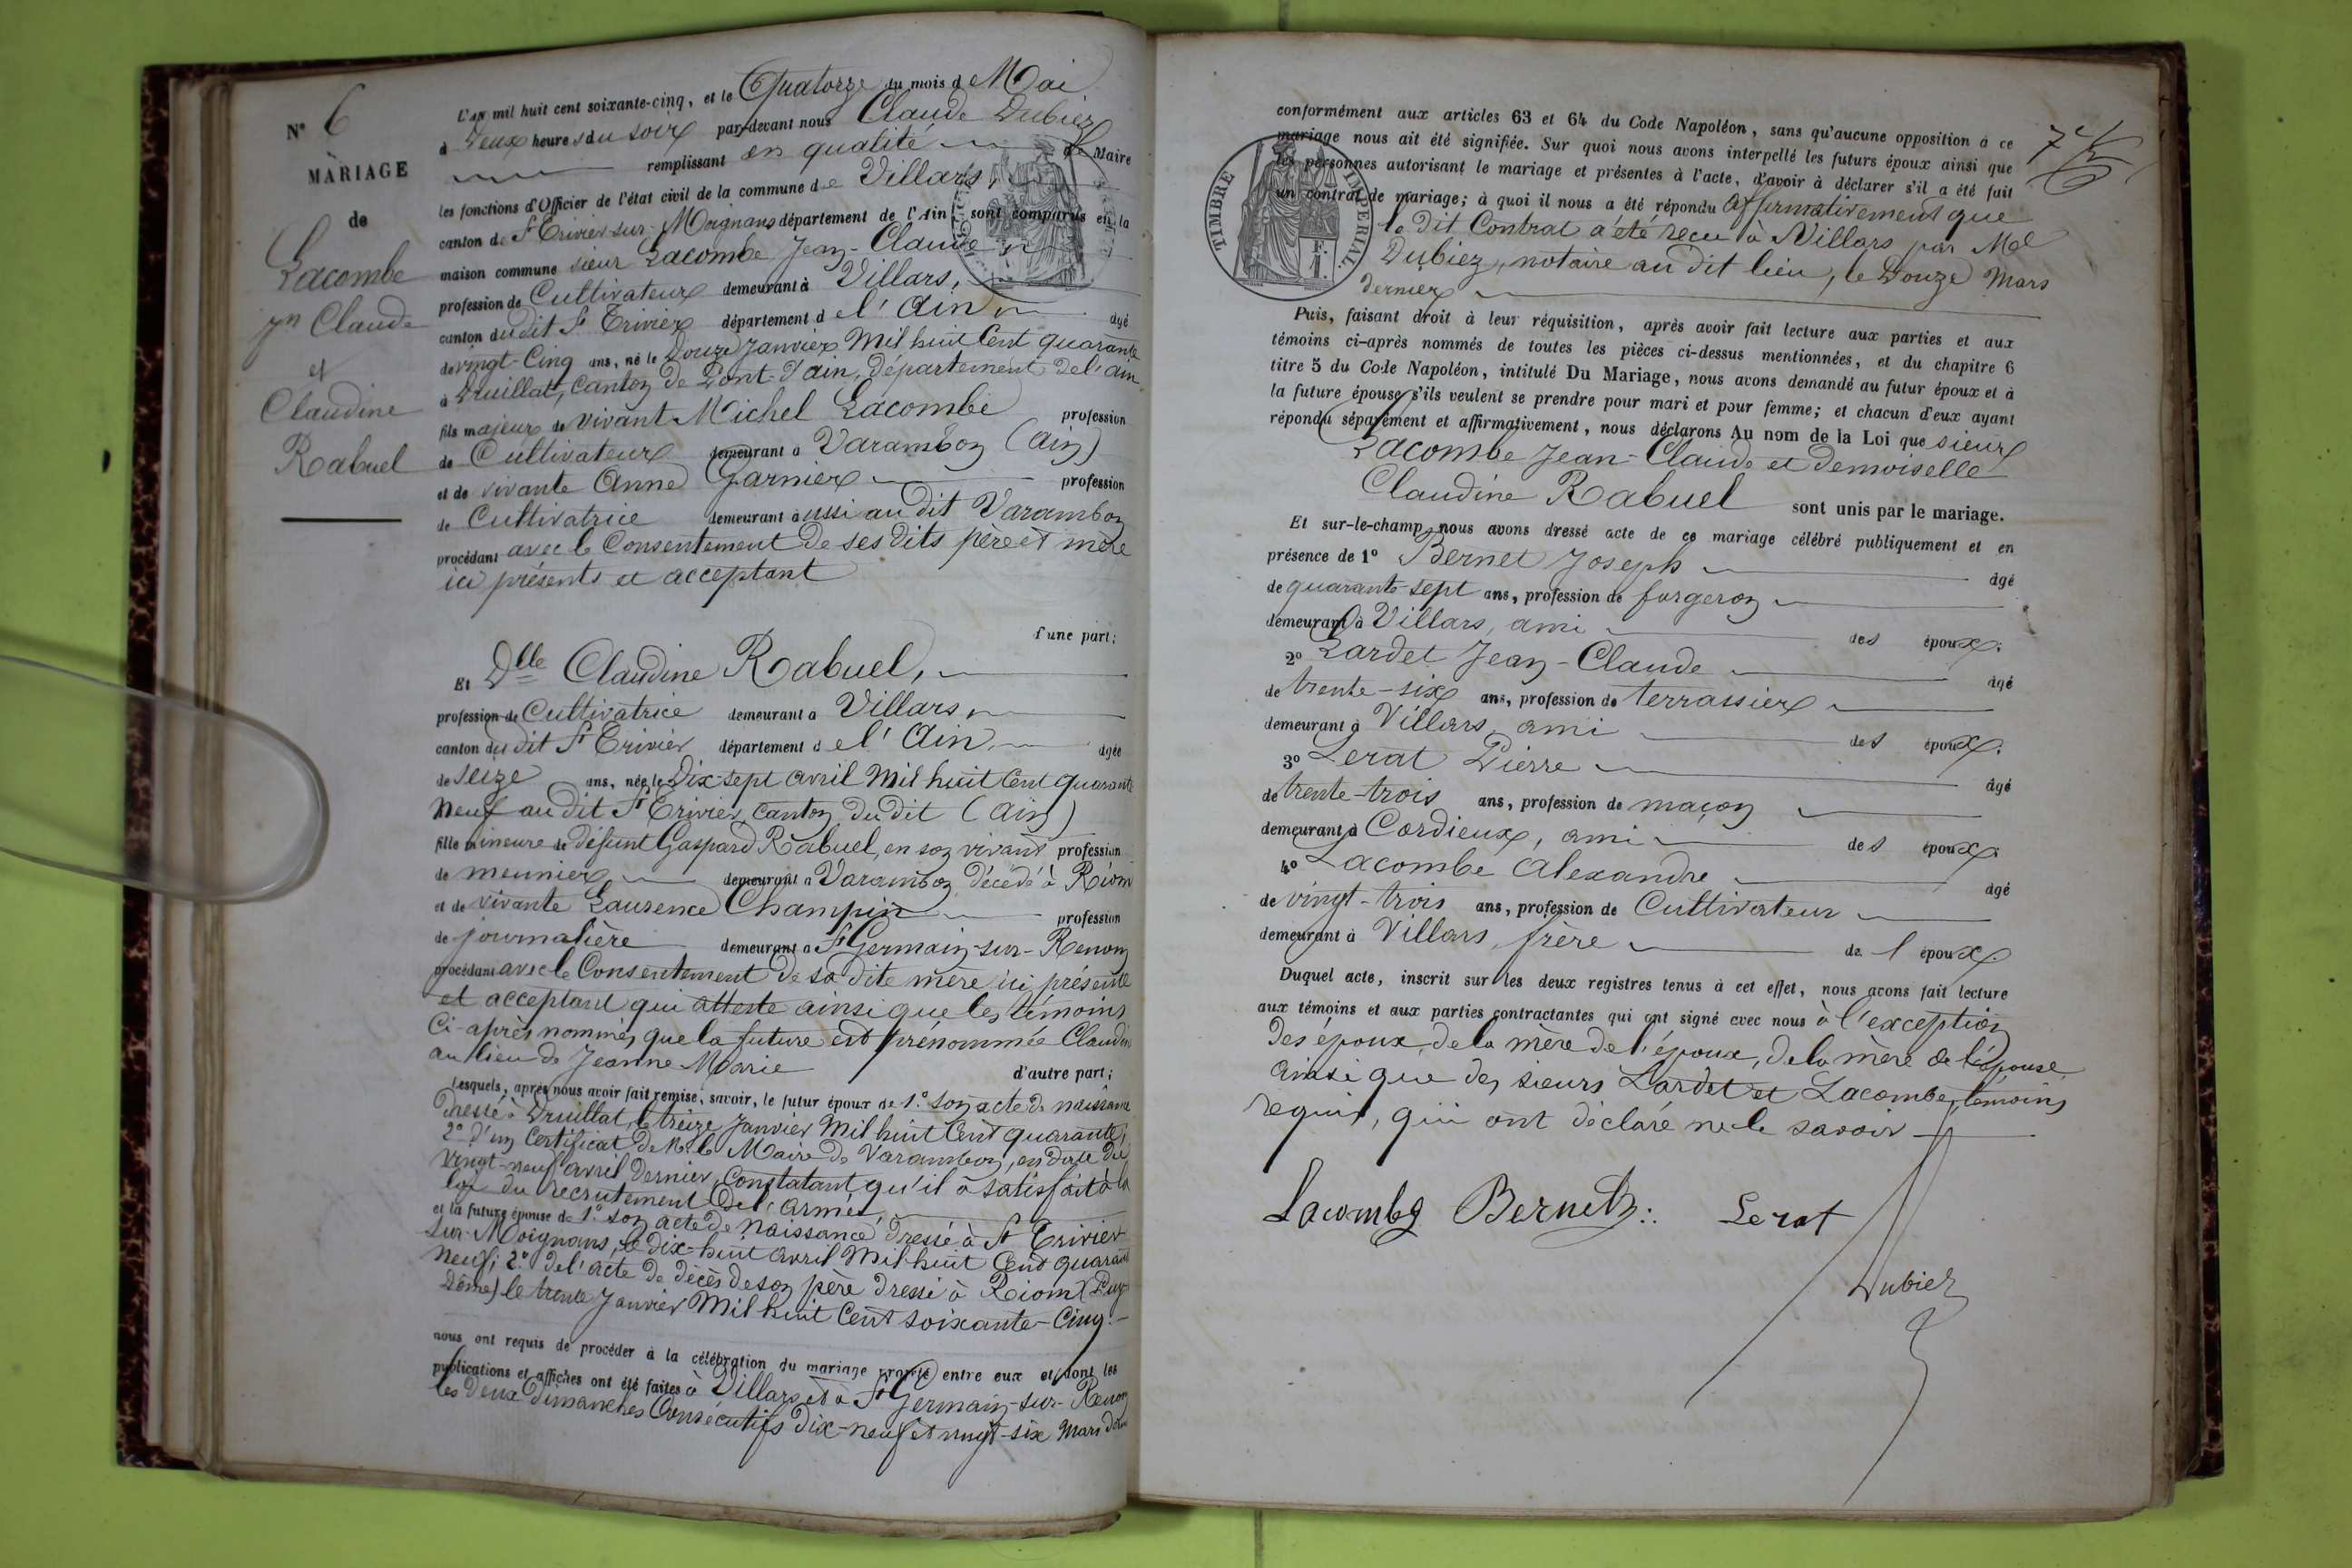 N° 6
MARIAGE
de
Lacombe
Jn Claude
et
Claudine
Rabuel
L'an mil huit cent soixante-cinq, et le Quatorze du mois de Mai
à Deux heures du soir par-devant nous Claude Dubiez
remplissant en qualité de Maire
les fonctions d'Officier de l'état civil de la commune de Villars,
canton de St Trivier-sur-Moignans département de l'Ain sont comparus en la
maison commune sieur Lacombe Jean-Claude
profession de Cultivateur demeurant à Villars,
canton dudit St Trivier département de l'Ain âgé
de vingt-Cinq ans, né le Douze Janvier Mil huit Cent quarante
à Druillat, Canton de Pont-d'ain, département de l'ain
fils majeur de vivant Michel Lacombe profession
de Cultivateur demeurant à Varambon (Ain)
et de vivante Anne Garnier profession
de Cultivatrice demeurant aussi au dit Varambon
procédant avec le Consentement de ses dits père et mère
ici présents et acceptant
d'une part;
Et Dlle Claudine Rabuel,
profession de Cultivatrice demeurant à Villars
canton du dit St Trivier département de l'Ain, âgée
de seize ans, née le Dix-sept avril Mil huit Cent quarante
Neuf au dit St Trivier, Canton du dit (Ain)
fille mineure de défunt Gaspard Rabuel, en son vivant profession
de meunier demeurant à Varambon, décédé à Riom
et de vivante Laurence Champin profession
de journalière demeurant à St Germain-sur-Renom
procédant avec le Consentement de sa dite mère ici présente
et acceptant qui atteste ainsi que les témoins
Ci-après nommés, que la future est prénommée Claudine
au lieu de Jeanne Marie
d'autre part;
Lesquels, après nous avoir fait remise, savoir, le futur époux de 1.° son acte de naissance
dressé à Druillat, le treize Janvier Mil huit Cent quarante;
2° d'un Certificat de Mr le Maire de Varambon, en date du
vingt-neuf avril dernier, Constatant qu'il a satisfait à la
loi du recrutement de l'armée,
et la future épouse de 1.° son acte de Naissance dressé à St Trivier
sur-Moignans, le dix-huit avril Mil huit Cent quarante
Neuf; 2.° de l'acte de décès de son père dressé à Riom (Puy
Dôme) le trente Janvier Mil huit Cent soixante-Cinq.
nous ont requis de procéder à la célébration du mariage projeté entre eux et dont les
publications et affiches ont été faites à Villars et à St Germain-sur-Renom
les deux dimanches Consécutifs dix-neuf et vingt-six Mars
conformément aux articles 63 et 64 du Code Napoléon, sans qu'aucune opposition à ce
mariage nous ait été signifiée. Sur quoi nous avons interpellé les futurs époux ainsi que
les personnes autorisant le mariage et présentes à l'acte, d'avoir à déclarer s'il a été fait
un contrat de mariage; à quoi il nous a été répondu affirmativement que
TIMBRE IMPÉRIAL.
le dit Contrat a été reçu à Villars par Me
Dubiez, notaire au dit lieu, le Douze Mars
dernier
Puis, faisant droit à leur réquisition, après avoir fait lecture aux parties et aux
témoins ci-après nommés de toutes les pièces ci-dessus mentionnées, et du chapitre 6
titre 5 du Code Napoléon, intitulé Du Mariage, nous avons demandé au futur époux et à
la future épouse s'ils veulent se prendre pour mari et pour femme; et chacun d'eux ayant
répondu séparément et affirmativement, nous déclarons Au nom de la Loi que sieur
Lacombe Jean-Claude et demoiselle
Claudine Rabuel sont unis par le mariage.
Et sur-le-champ nous avons dressé acte de ce mariage célébré publiquement et en
présence de 1° Bernet Joseph âgé
de quarante-sept ans, profession de forgeron
demeurant à Villars, ami des époux.
2° Lardet Jean-Claude âgé
de trente-six ans, profession de terrassier
demeurant à Villars, ami des époux.
3° Lerat Pierre âgé
de trente-trois ans, profession de maçon
demeurant à Cordieux, ami des époux.
4° Lacombe Alexandre âgé
de vingt-trois ans, profession de Cultivateur
demeurant à Villars, frère de l'époux.
Duquel acte, inscrit sur les deux registres tenus à cet effet, nous avons fait lecture
aux témoins et aux parties contractantes qui ont signé avec nous à l'exception
des époux, de la mère de l'époux, de la mère de l'épouse,
ainsi que des sieurs Lardet et Lacombe, témoins
requis, qui ont déclaré ne le savoir
Lacombe Bernet Lerat
Dubiez